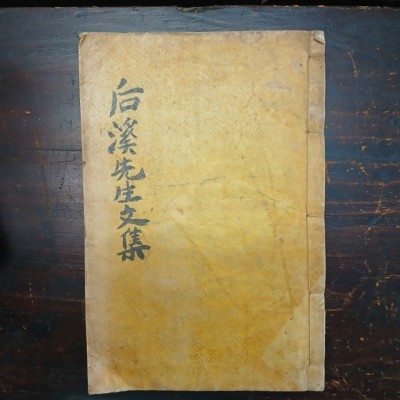 后溪先生文集